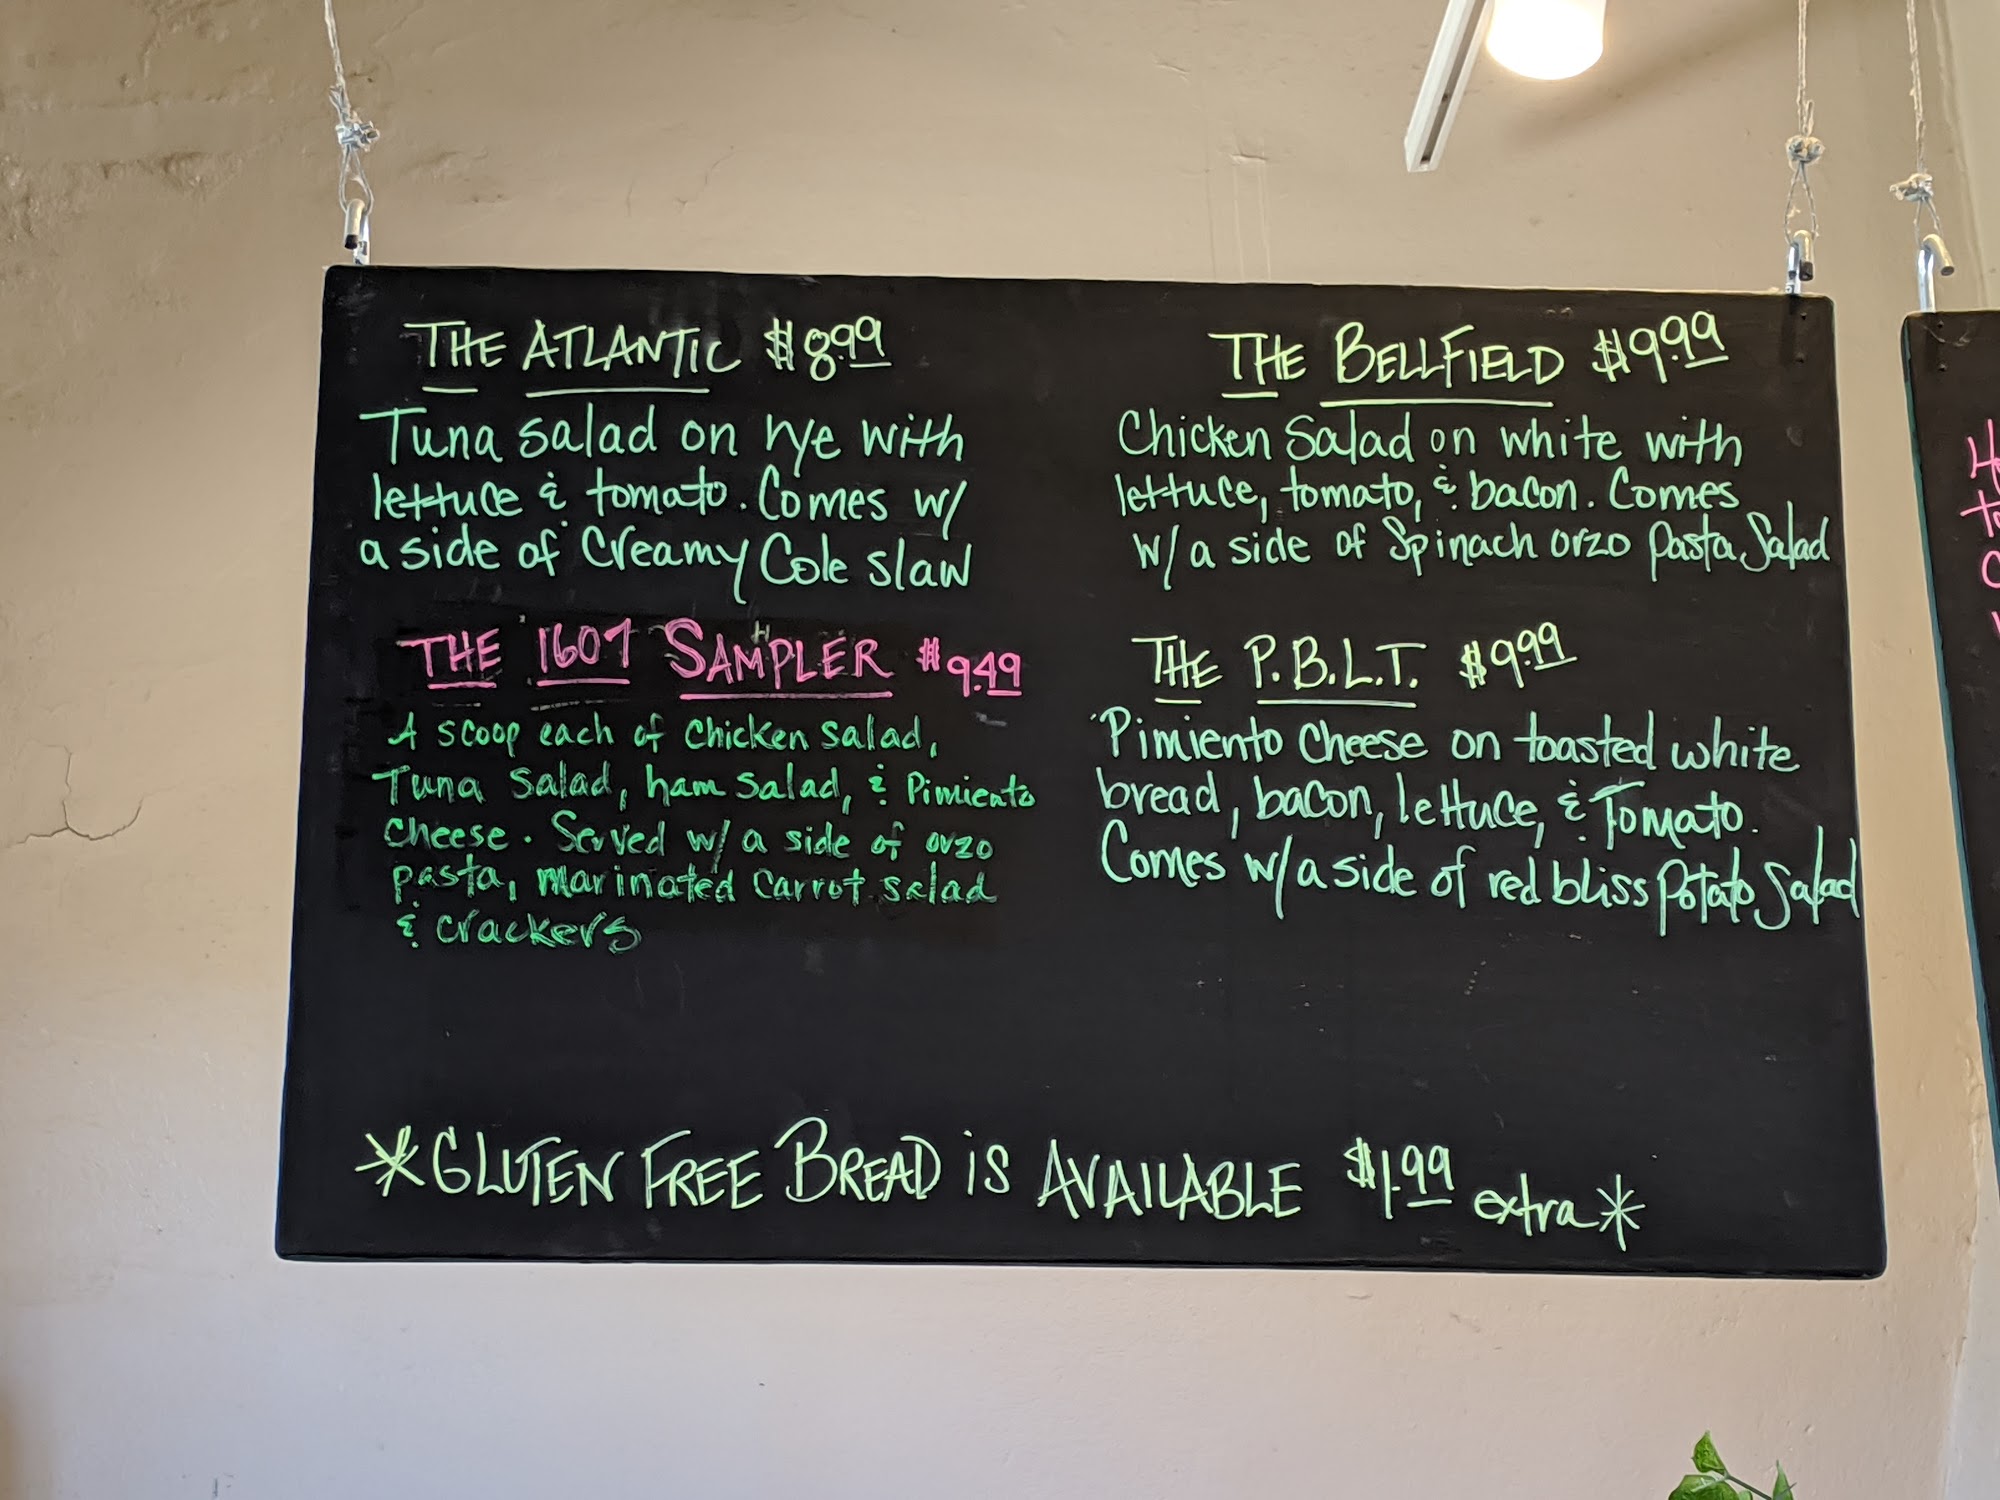 THE ATLANTIC $8.99
Tuna salad on rye with
lettuce & tomato. Comes w/
a side of Creamy Cole slaw
THE 1607 SAMPLER $9.49
A scoop each of chicken salad,
Tuna salad, ham salad, & Pimiento
cheese. Served w/ a side of orzo
pasta, marinated carrot salad
& crackers
THE BELLFIELD $9.99
Chicken Salad on white with
lettuce, tomato, & bacon. Comes
w/ a side of Spinach orzo pasta Salad
THE P.B.L.T. $9.99
Pimiento Cheese on toasted white
bread, bacon, lettuce, & Tomato.
Comes w/ a side of red bliss Potato Salad
*GLUTEN FREE BREAD iS AVAILABLE $1.99 extra*